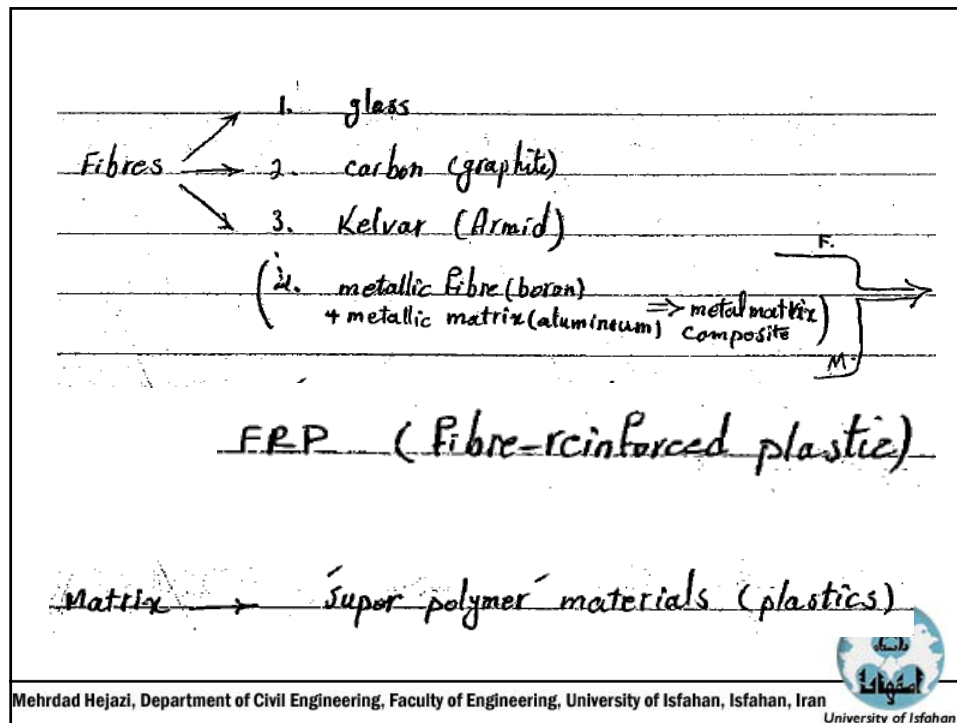 1. glass
Fibres 2. carbon (graphite)
3. Kelvar (Armid)
F.
metallic fibre (boron)
+ metallic matrix (alumineum) => metal matrix composite)
M.
FRP (fibre-reinforced plastic)
Matrix → Super polymer materials (plastics)
Mehrdad Hejazi, Department of Civil Engineering, Faculty of Engineering, University of Isfahan, Isfahan, Iran
University of Isfahan